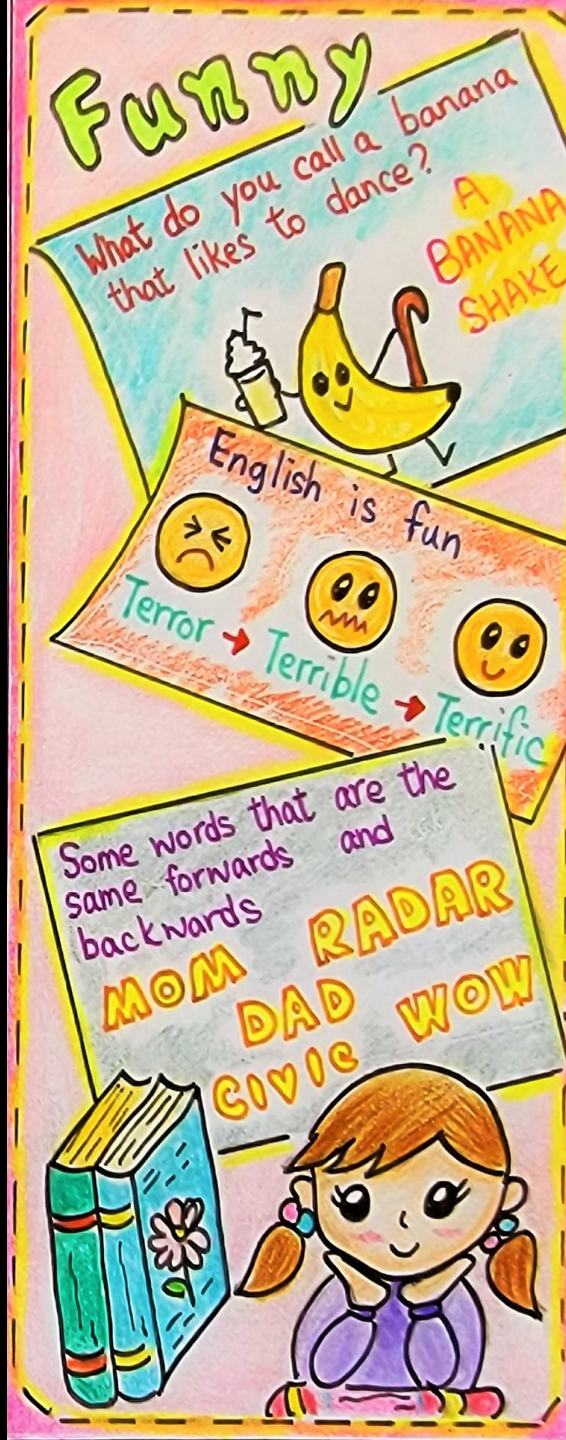 Funny
What do you call a banana
that likes to dance?
A
BANANA
SHAKE
English is fun
Terror → Terrible → Terrific
Some words that are the
same forwards and
backwards
MOM RADAR
DAD WOW
CIVIC